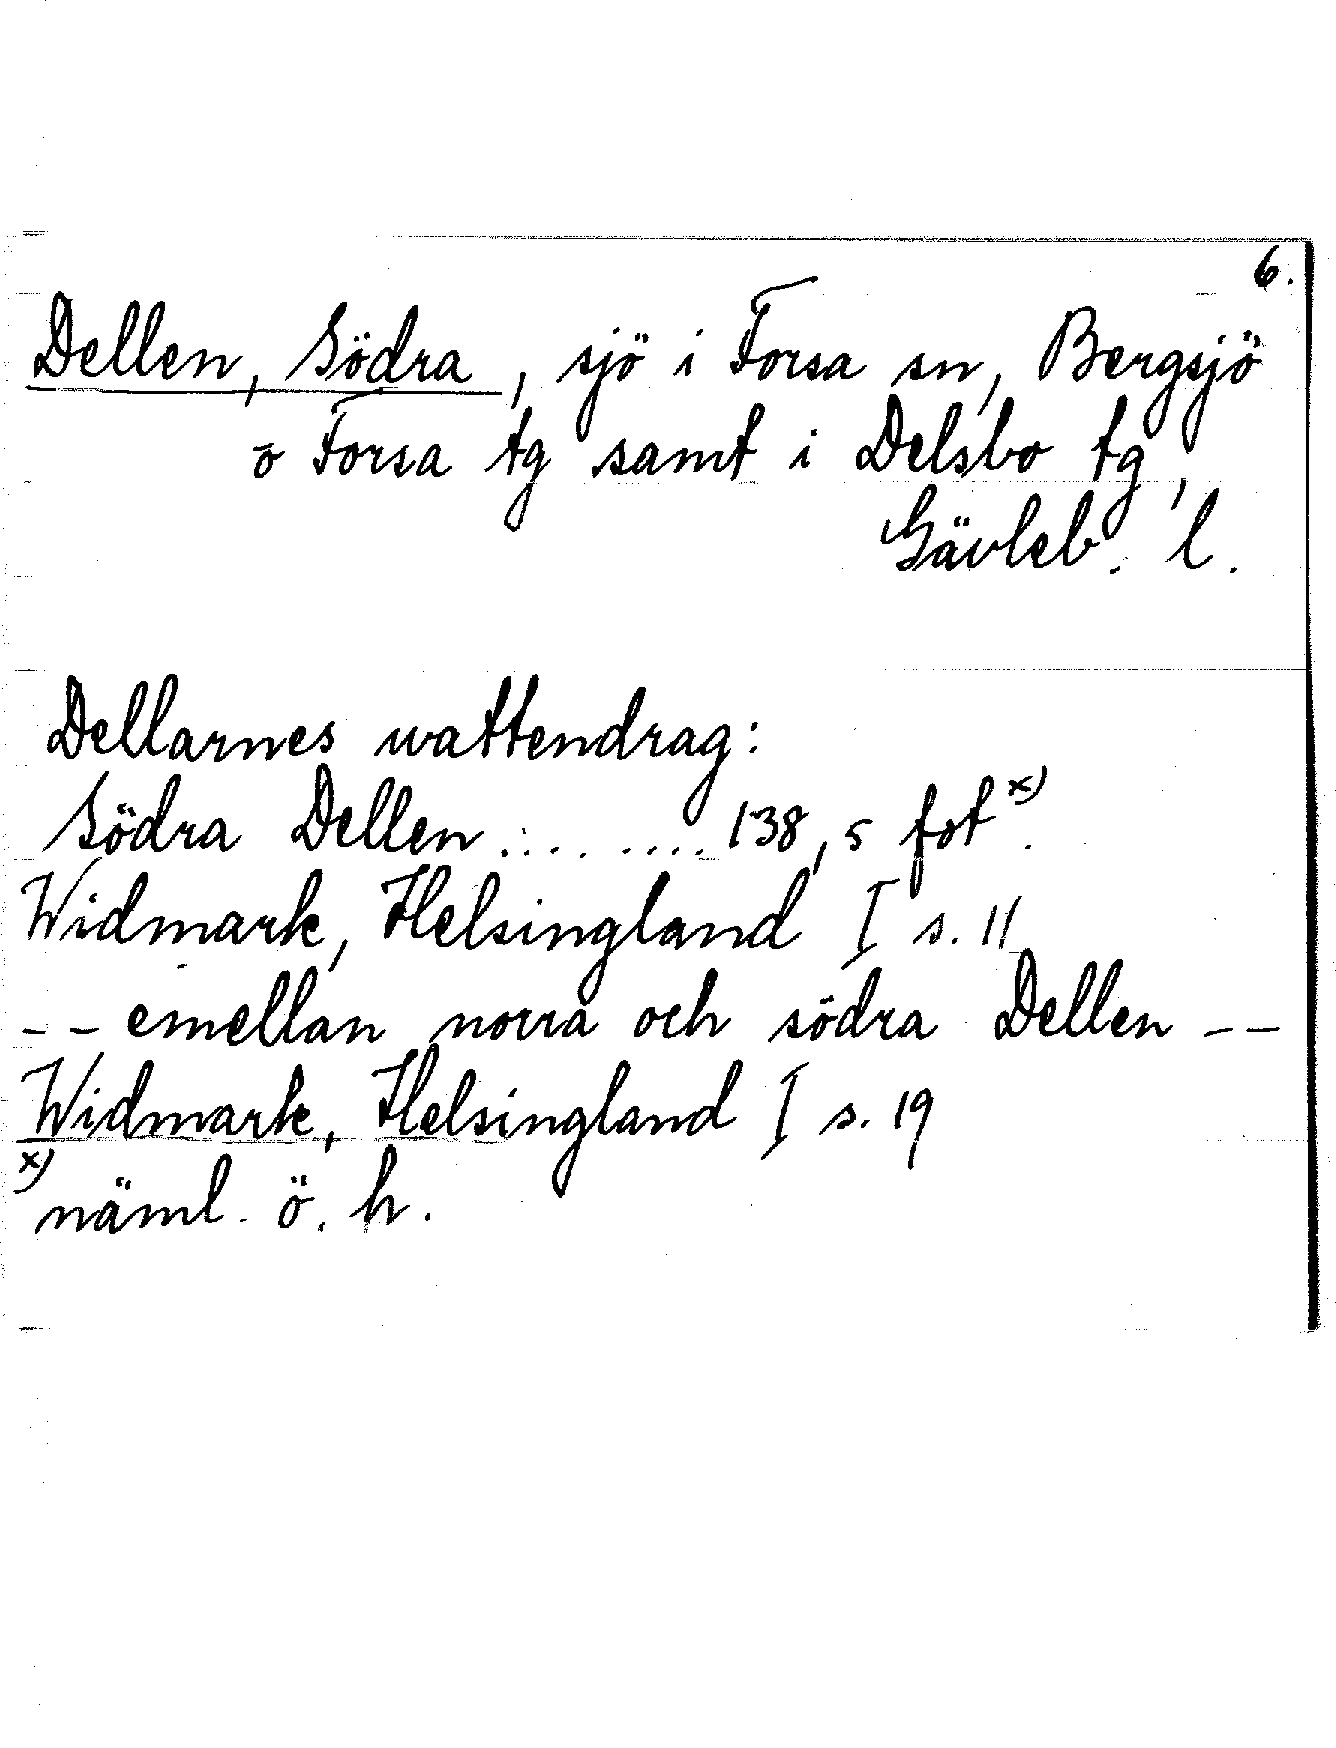 6.
Dellen, Södra, sjö i Forsa sn, Bergsjö
o Forsa tg samt i Delsbo tg,
Gävleb. l.
Dellarnes wattendrag:
Södra Dellen ......... 138,5 fot x).
Widmark, Helsingland I s. 11
-- emellan norra och södra Dellen --
Widmark, Helsingland I s. 19
x)
näml. ö. h.